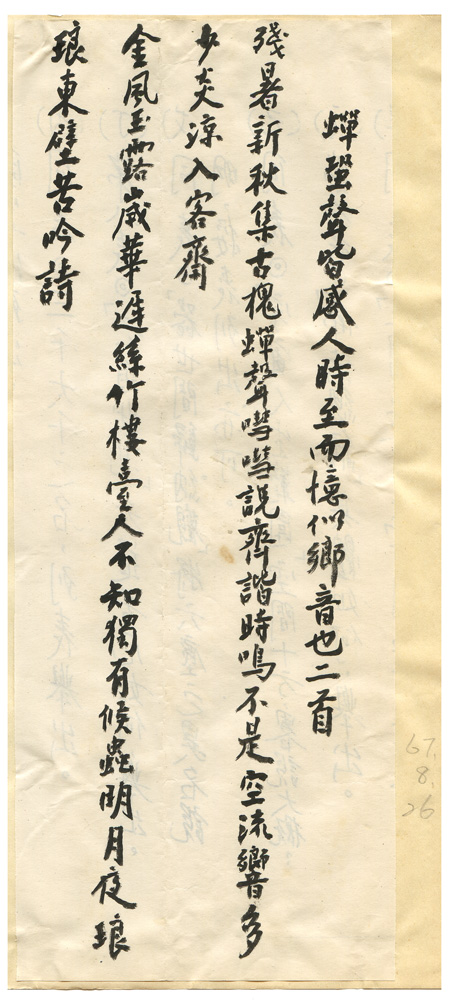 蟬蛩聲皆感人時至而憶似鄉音也二首
殘暑新秋集古槐蟬聲嘒嘒説齊諧時鳴不是空流響多
少炎涼入客齋
金風玉露歲華遲絲竹樓臺人不知獨有候蟲明月夜琅
琅東壁苦吟詩
67.
8.
26